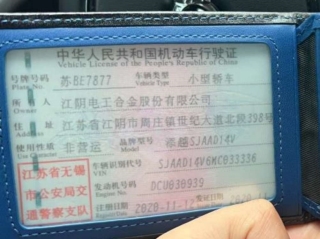 中华人民共和国机动车行驶证
Vehicle License of the People's Republic of China
号牌号码 苏BE7877 车辆类型 小型轿车
Plate No. Vehicle Type
所有人 江阴电工合金股份有限公司
Owner
住址 江苏省江阴市周庄镇世纪大道北段398号
Address
使用性质 非营运 品牌型号
Use Character Model
江苏省无锡
市公安局交
通警察支队
车辆识别代号
VIN
发动机号码
Engine No.
注册日期 2020-11-12